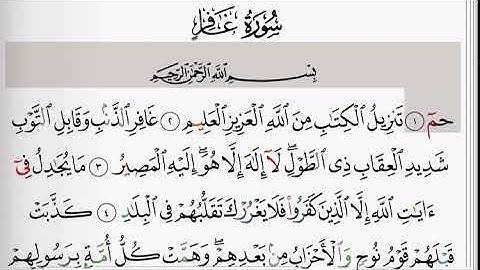 سُورَةُ غَافِرٍ
بِسْمِ اللَّهِ الرَّحْمَٰنِ الرَّحِيمِ
حمٓ ١ تَنزِيلُ الْكِتَابِ مِنَ اللَّهِ الْعَزِيزِ الْعَلِيمِ ٢ غَافِرِ الذَّنبِ وَقَابِلِ التَّوْبِ
شَدِيدِ الْعِقَابِ ذِى الطَّوْلِ ۖ لَآ إِلَٰهَ إِلَّا هُوَ ۖ إِلَيْهِ الْمَصِيرُ ٣ مَا يُجَٰدِلُ فِىٓ
ءَايَٰتِ اللَّهِ إِلَّا الَّذِينَ كَفَرُوا فَلَا يَغْرُرْكَ تَقَلُّبُهُمْ فِى الْبِلَٰدِ ٤ كَذَّبَتْ
قَبْلَهُمْ قَوْمُ نُوحٍ وَالْأَحْزَابُ مِنۢ بَعْدِهِمْ ۖ وَهَمَّتْ كُلُّ أُمَّةٍۭ بِرَسُولِهِمْ